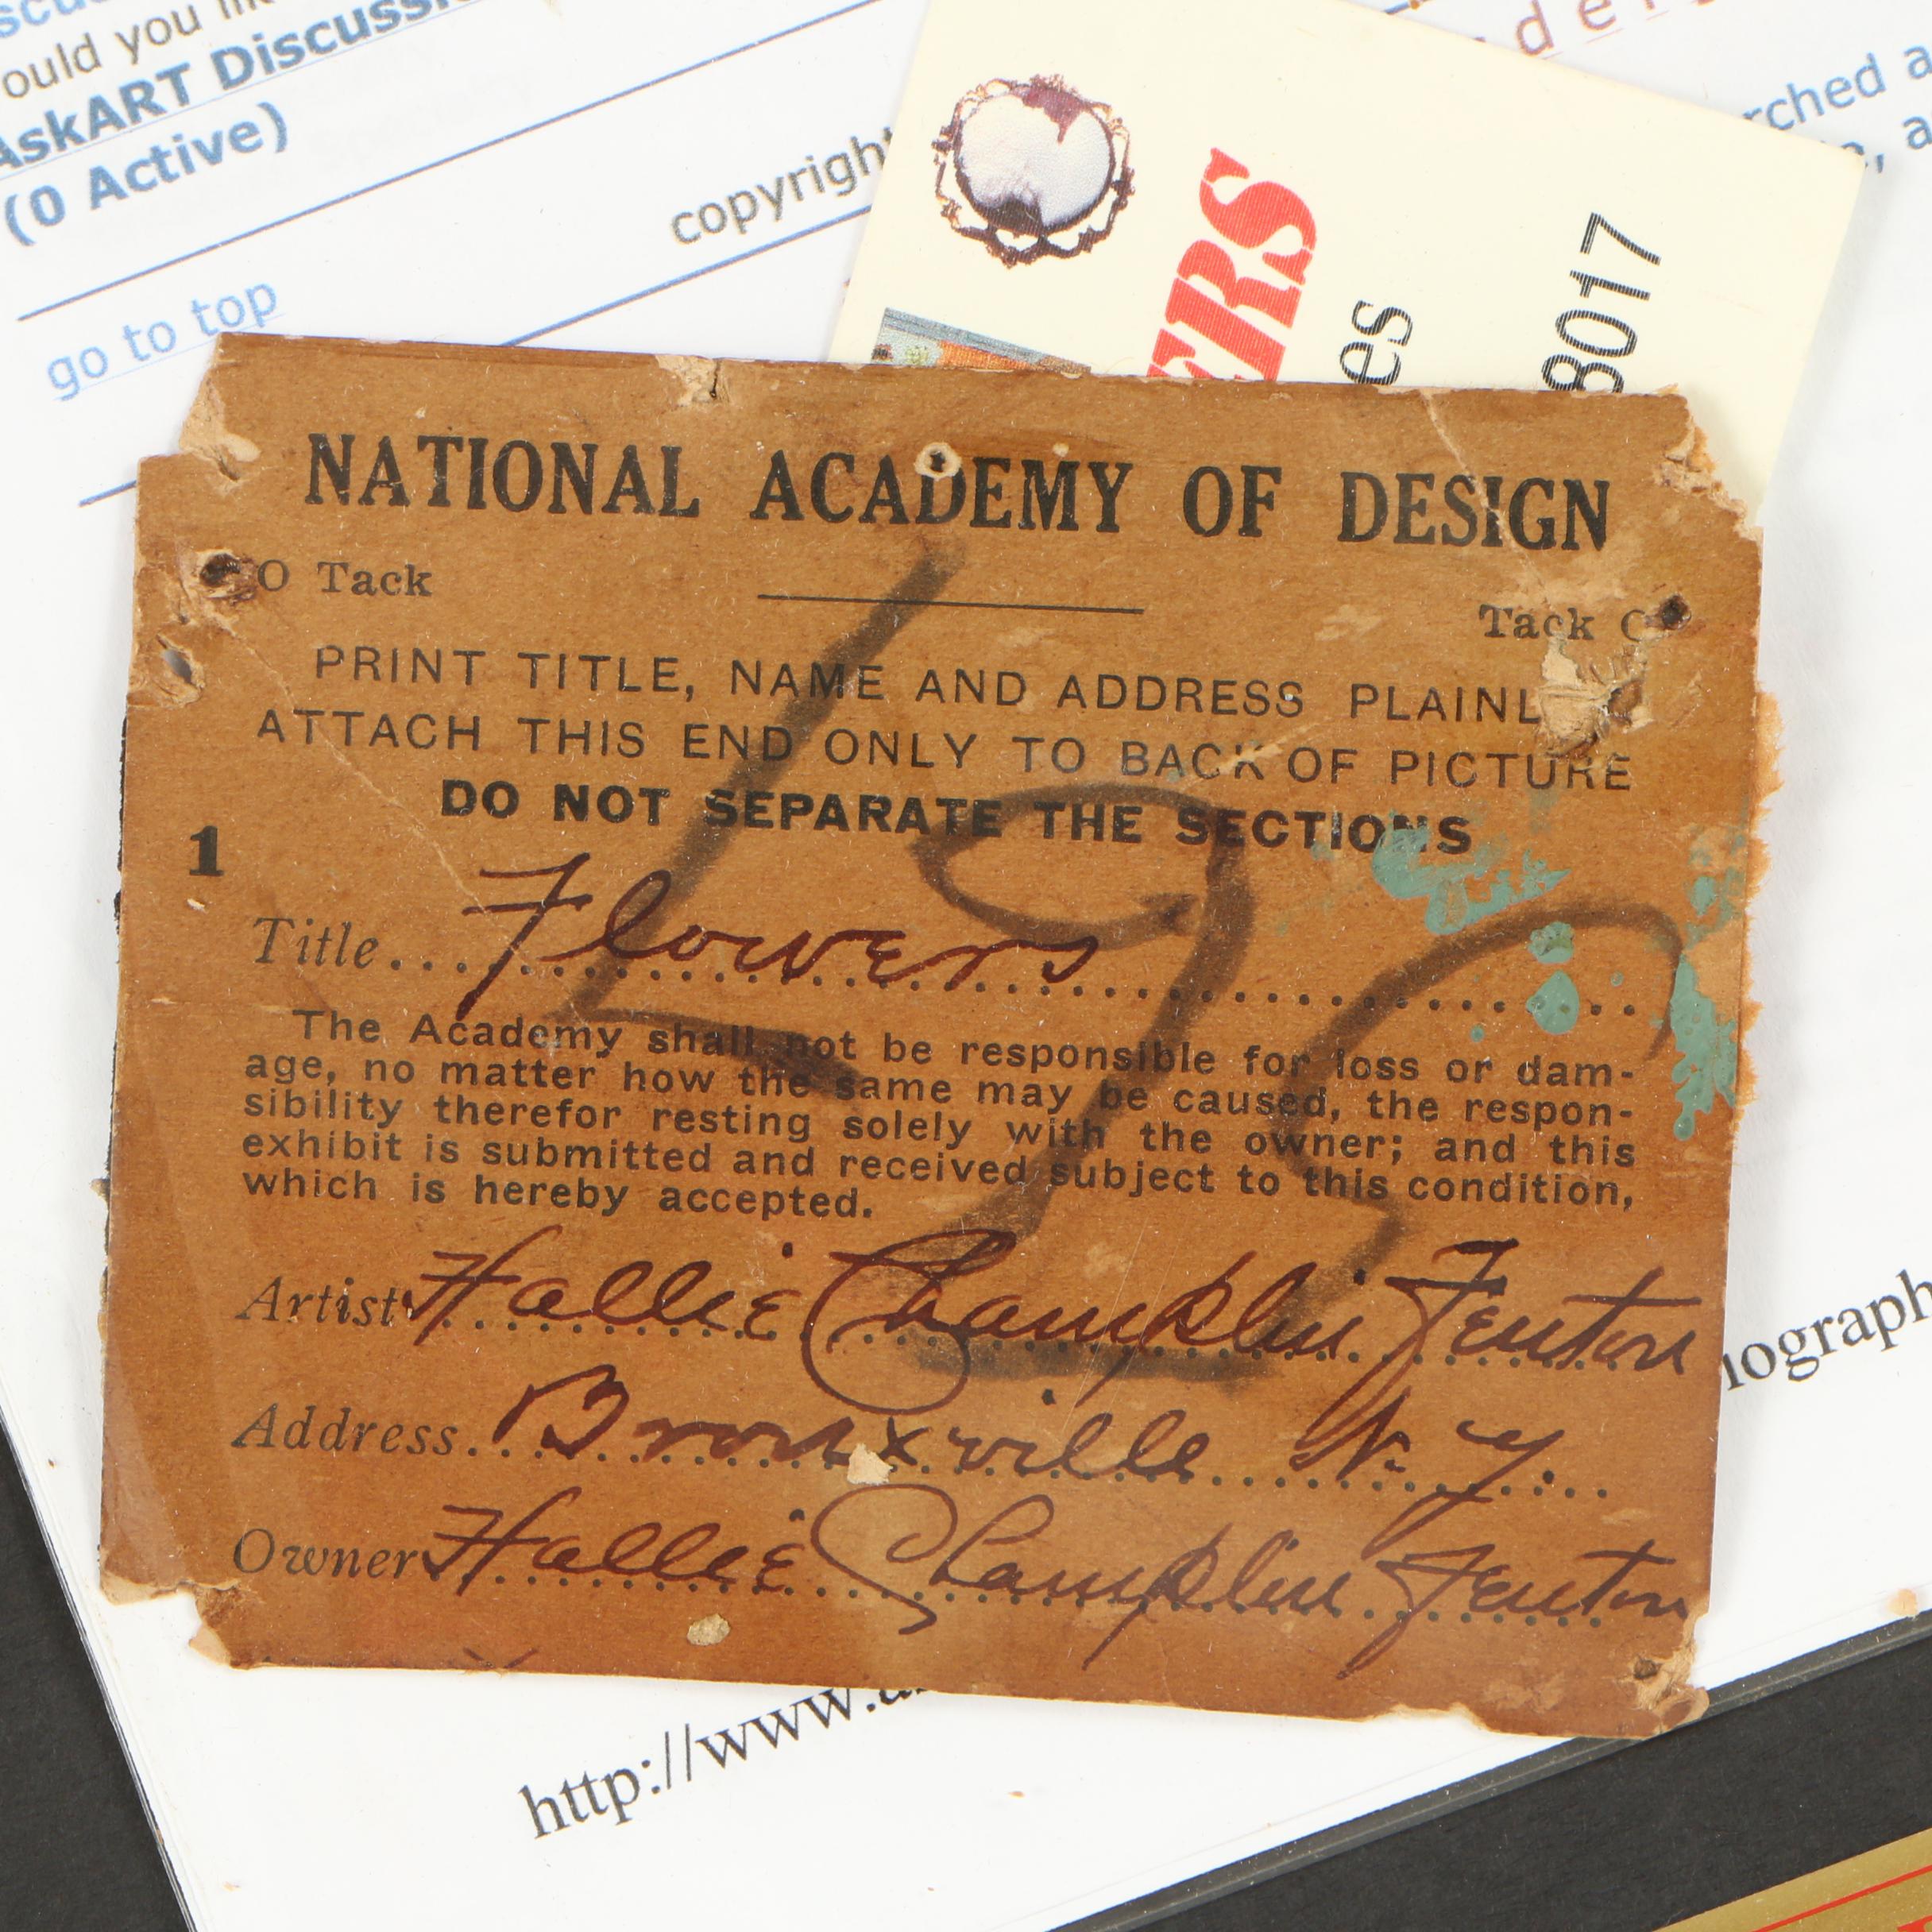 ould you
AskART Discussi
(0 Active)
copyright
go to top
ERS
es
8017
rched a
NATIONAL ACADEMY OF DESIGN
O Tack
Tack O
PRINT TITLE, NAME AND ADDRESS PLAINL
ATTACH THIS END ONLY TO BACK OF PICTURE
DO NOT SEPARATE THE SECTIONS
1
Title... Flowers
The Academy shall not be responsible for loss or dam-
age, no matter how the same may be caused, the respon-
sibility therefor resting solely with the owner; and this
exhibit is submitted and received subject to this condition,
which is hereby accepted.
Artist Hallie Champlin Fenton
Address... Bronxville N. Y.
Owner Hallie Champlin Fenton
nograph
http://www.a